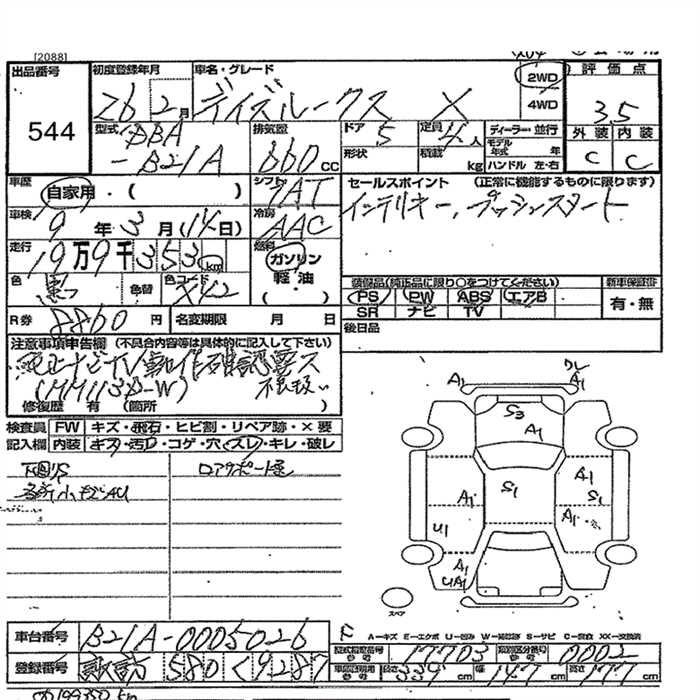 [2088]
出品番号 初度登録年月 車名・グレード 2WD 評価点
544 26 2月 デイズルークス X 4WD 3.5
型式 DBA-B21A 排気量 660 cc ドア 5 定員 4人 ディーラー・並行 外装 内装
形状 積載 kg モデル年式 年 ハンドル 左・右 C C
車歴 自家用・( ) シフト セールスポイント (正常に機能するものに限ります)
車検 9年 3月 (14日) 冷房 AAC インテリキー、プッシュスタート
走行 19万9千353 km 燃料 ガソリン 軽油 (・)
色 黒 色替 色コード X42 装備品(純正品に限り○をつけてください) 新車保証書
PS PW ABS エアB 有・無
R券 8860円 名変期限 月 日 SR ナビ TV
後日品
注意事項申告欄 (不具合内容等は具体的に記入して下さい)
純正ナビTV動作確認要ス
(MM113D-W) 不良扱い
修復歴 有 (箇所 )
検査員 FW キズ・飛石・ヒビ割・リペア跡・×要
記入欄 内装 キズ・汚レ・コゲ・穴・スレ・キレ・破レ
下回リS ロアサポート歪
各所小キズAU
A1 A1 ワレ
S3
A1
A1 S1 A1
S1
U1 A1
A1
UA1
スペア
車台番号 B21A-0005026
A-キズ E-エクボ U-凹み W-補修跡 S-サビ C-腐食 XX-交換済
型式指定番号 17703 類別区分番号 0002
登録番号 諏訪 580 く 9287
長さ 339cm 幅 147cm 高さ 177cm
199350 km